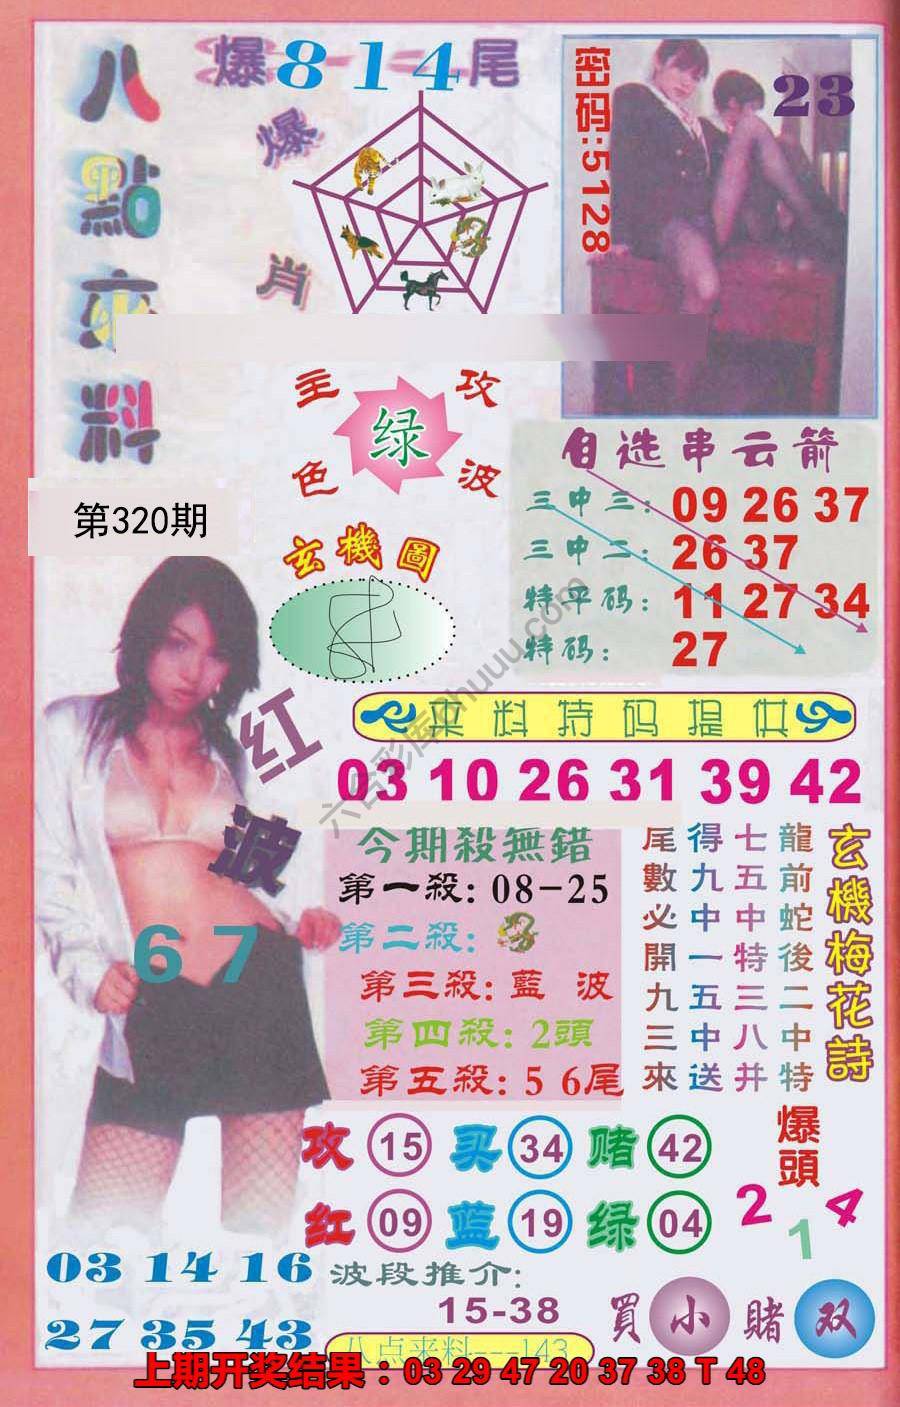 八點來料
爆8-1-4尾
爆肖
密码:5128
23
主攻
绿
色波
第320期
玄機圖
自选串云箭
三中三: 09 26 37
三中二: 26 37
特平码: 11 27 34
特码: 27
六合彩库qhuuu.com
红波
67
来料特码提供
03 10 26 31 39 42
今期殺無錯
第一殺: 08-25
第二殺:
第三殺: 藍 波
第四殺: 2頭
第五殺: 5 6尾
玄機梅花詩
龍前蛇後二中特
七五中特三八并
得九中一五中送
尾數必開九三來
攻 15 买 34 赌 42
红 09 蓝 19 绿 04
爆頭
2 1 4
03 14 16
27 35 43
波段推介:
15-38
買 小 賭 双
八点来料---143
上期开奖结果：03 29 47 20 37 38 T 48